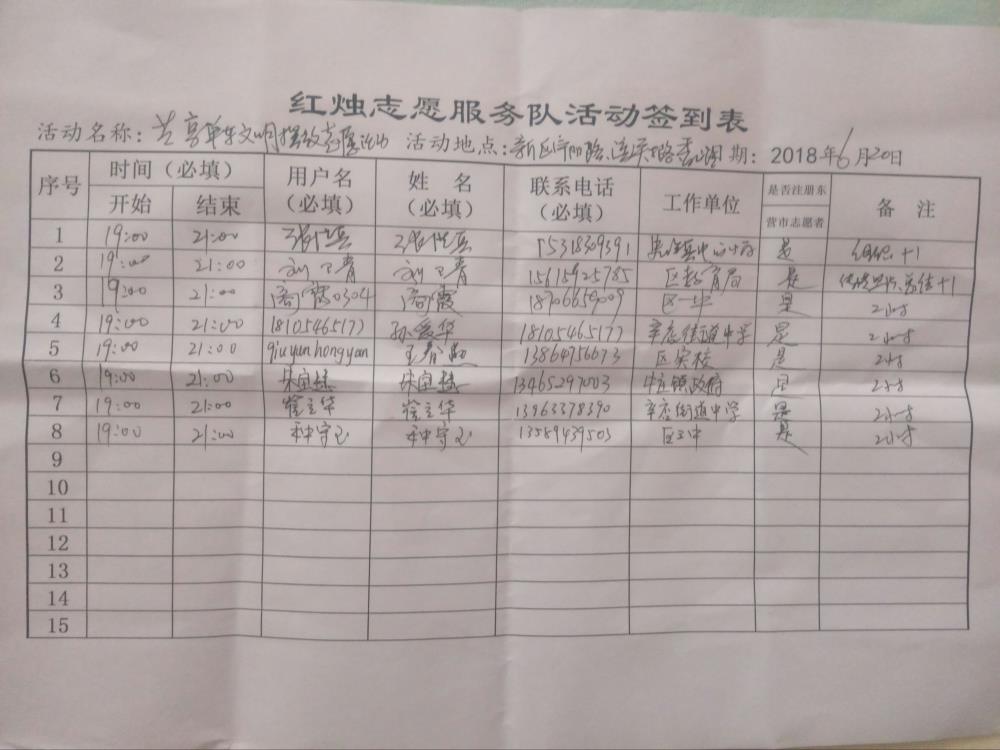 红烛志愿服务队活动签到表
活动名称：共享单车文明摆放志愿活动 活动地点：新区 路 期：2018年6月20日
序号 时间（必填） 用户名（必填） 姓名（必填） 联系电话（必填） 工作单位 是否注册东营市志愿者 备注
开始 结束
1 19:00 21:00 是 组织+1
2 19:00 21:00 刘卫青 刘卫青 15615925785 区教育局 是 总结+1
3 19:00 21:00 阎霞0304 阎霞 18706659009 区一中 是 2小时
4 19:00 21:00 18105465177 孙爱华 18105465177 辛店街道中学 是 2小时
5 19:00 21:00 qiuyunhongyan 13864756673 区实校 是 2小时
6 19:00 21:00 13465297003 镇政府 是 2小时
7 19:00 21:00 徐立华 徐立华 13963378390 辛店街道中学 是 2小时
8 19:00 21:00 种守玉 种守玉 13589439503 区三中 是 2小时
9
10
11
12
13
14
15